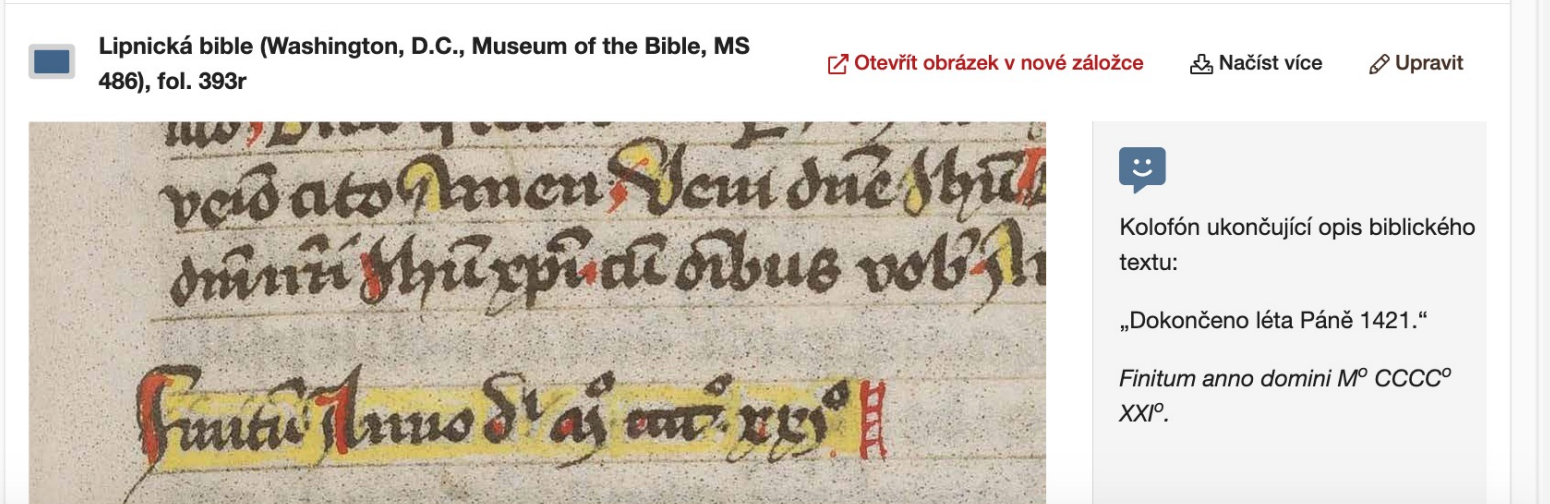 Lipnická bible (Washington, D.C., Museum of the Bible, MS
486), fol. 393r
Otevřít obrázek v nové záložce
Načíst více
Upravit
venio cito Amen Veni dn̄e Jhū
dn̄i nr̄i Jhū xp̄i cū oībus vob
Finitū Anno d mº ccccº xxiº
Kolofón ukončující opis biblického
textu:
„Dokončeno léta Páně 1421.“
Finitum anno domini Mº CCCCº
XXIº.